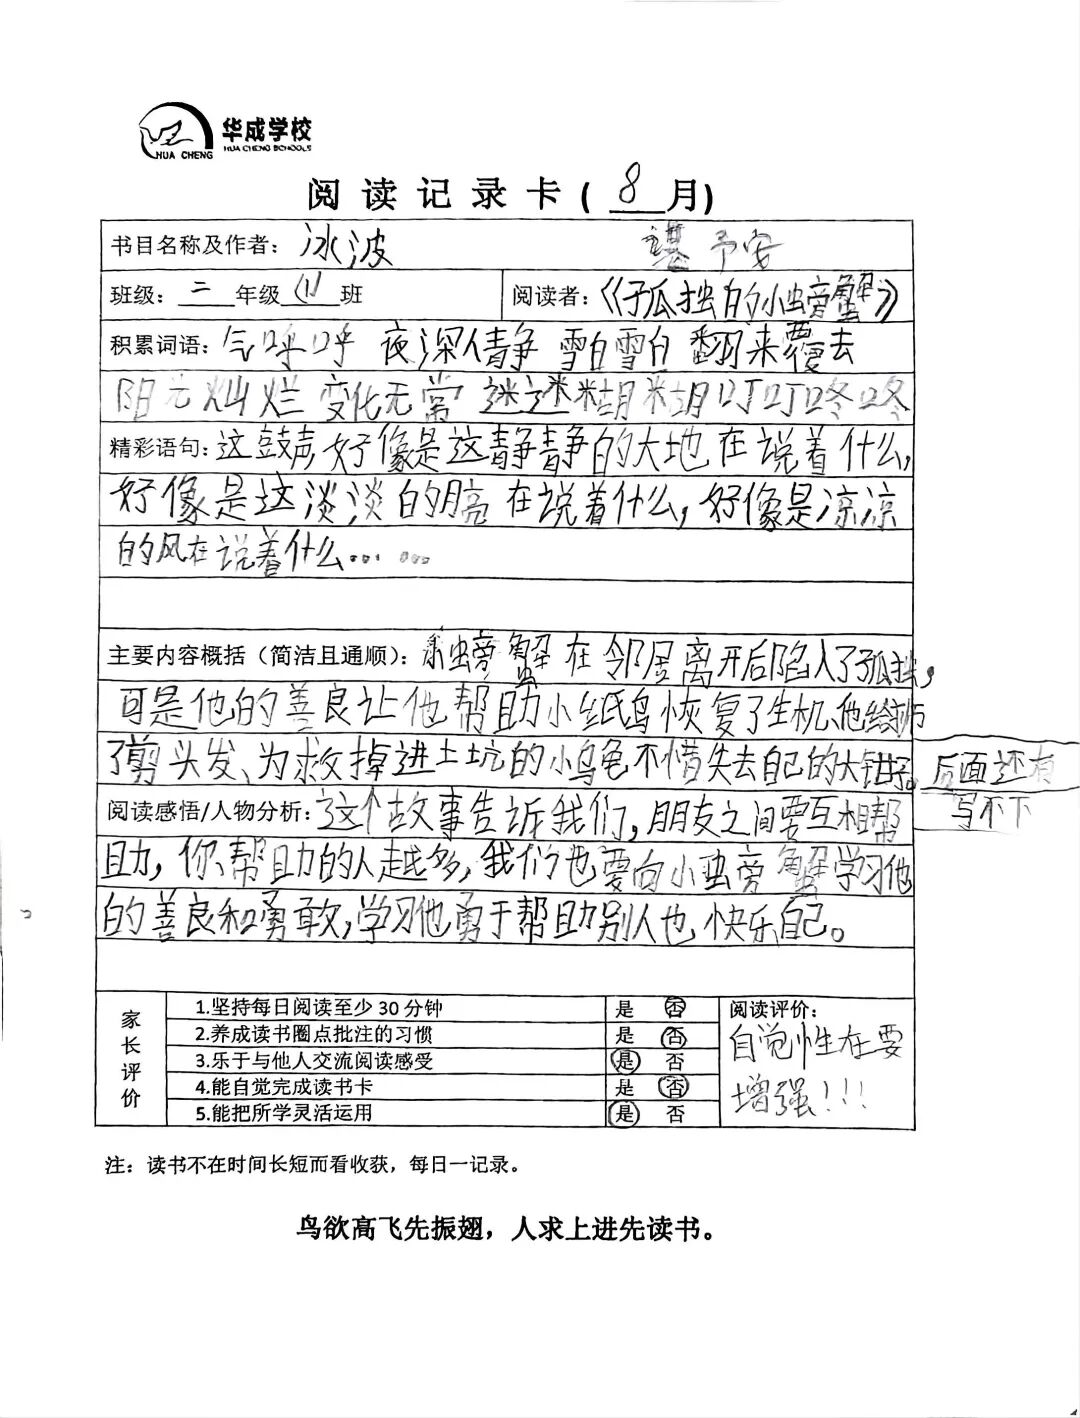 华成学校
HUA CHENG
HUA CHENG SCHOOLS
阅读记录卡(8月)
书目名称及作者：冰波 予安
班级：二年级(1)班 阅读者：《孤独的小螃蟹》
积累词语：气呼呼 夜深人静 雪白雪白 翻来覆去
阳光灿烂 变化无常 迷迷糊糊 叮叮咚咚
精彩语句：这鼓声好像是这静静的大地在说着什么,
好像是这淡淡的月亮在说着什么,好像是凉凉
的风在说着什么……
主要内容概括（简洁且通顺）：螃蟹在邻居离开后陷入了孤独,
可是他的善良让他帮助小纸鸟恢复了生机、他给
了剪头发、为救掉进土坑的小乌龟不惜失去自己的大钳子。后面还有
写不下
阅读感悟/人物分析：这个故事告诉我们,朋友之间要互相帮
助,你帮助的人越多,我们也要向小螃蟹学习他
的善良和勇敢,学习他勇于帮助别人也快乐自己。
家长评价
1.坚持每日阅读至少30分钟 是 否
2.养成读书圈点批注的习惯 是 否
3.乐于与他人交流阅读感受 是 否
4.能自觉完成读书卡 是 否
5.能把所学灵活运用 是 否
阅读评价：
自觉性在要
增强!!!
注：读书不在时间长短而看收获，每日一记录。
鸟欲高飞先振翅，人求上进先读书。